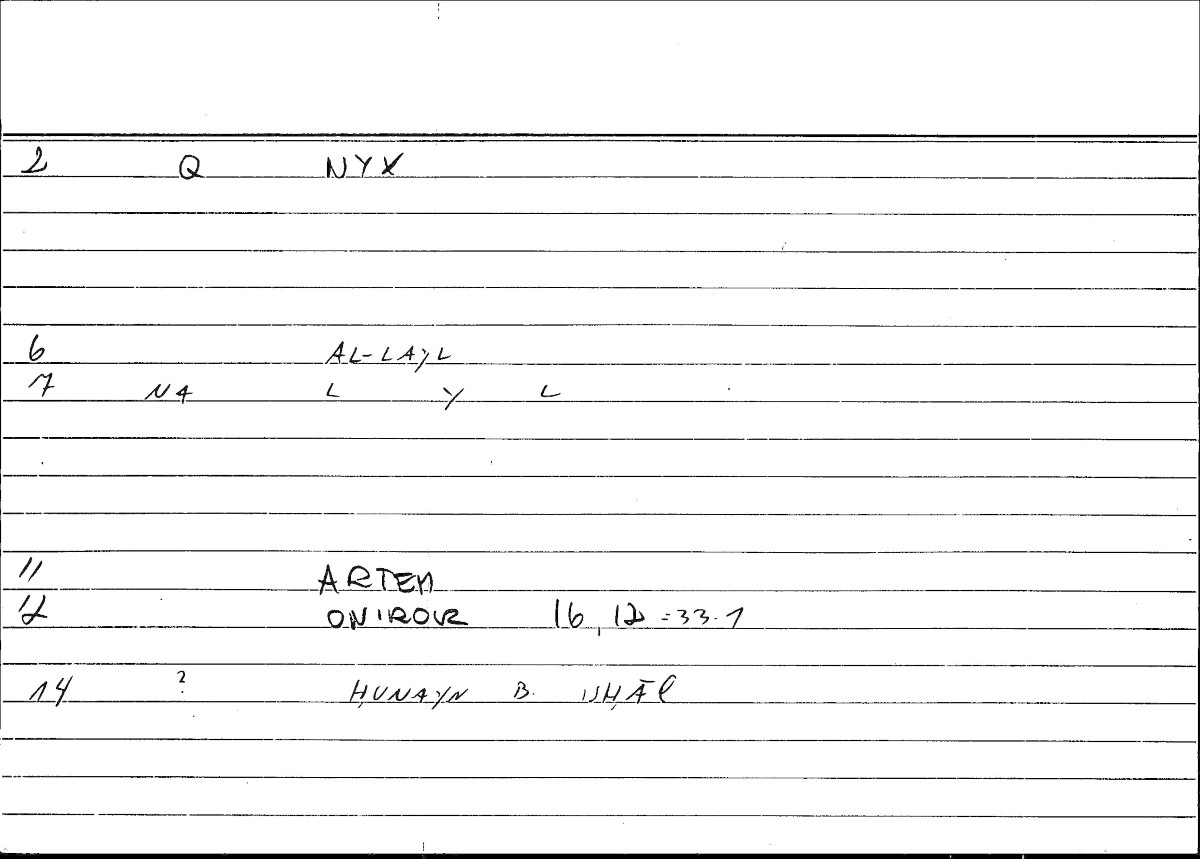 2 Q NYX
6 AL-LAYL
7 N4 L Y L
11 ARTEM
12 ONIROCR 16,12 = 33.1
14 ? ḤUNAYN B. ISḤĀQ